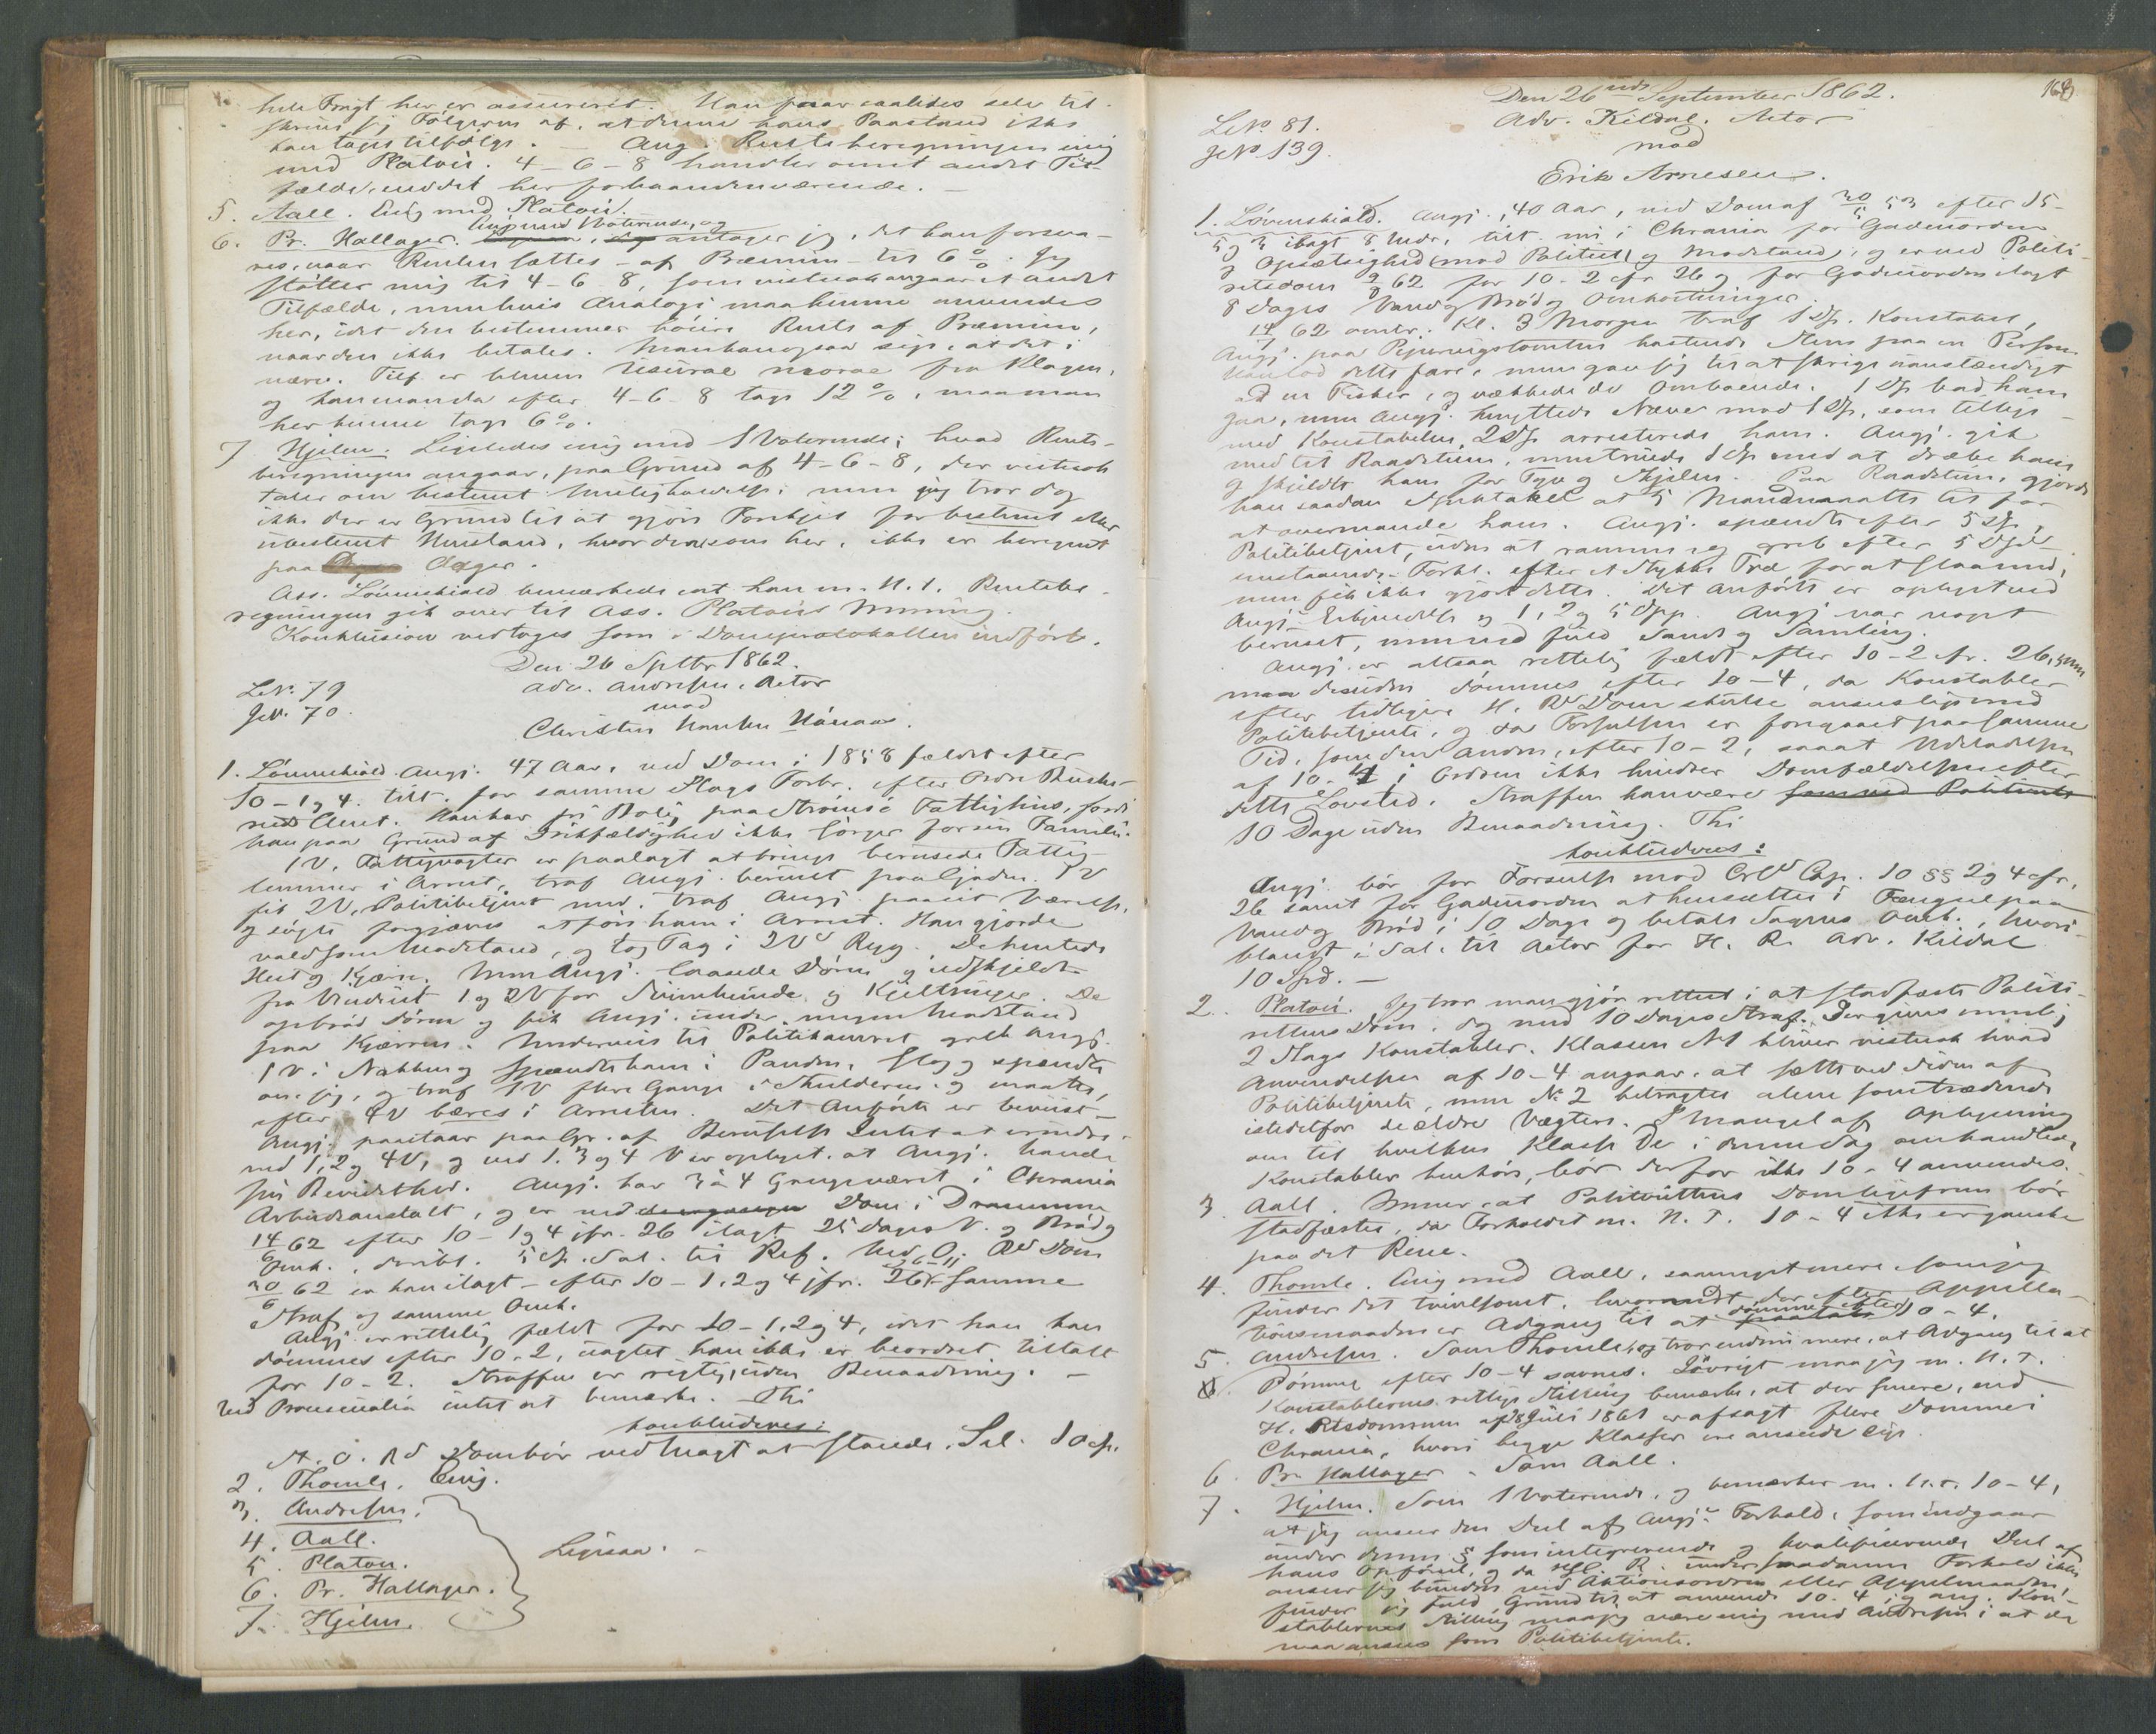 hele Fragt her er assureret. Han faar saaledes selv til-
skrive sig Følgerne af, at denne hans Paastand ikke
kan tages tilfølge. — Ang. Renteberegningen enig
med Platou. 4-6-8 handler om et andet Til-
fælde, end det her forhaandenværende. —
5. Aall. Enig med Platou.
Enig med 1 Voterende, og
6. Pr. Hallager. antager jeg, at han forsva-
res, naar Renten sættes - af Præmien - til 6 %. Jeg
støtter mig til 4-6-8, som vistnok angaar et andet
Tilfælde, men hvis Analogi maa kunne anvendes
her, idet den bestemmer høiere Rente af Præmien,
naar den ikke betales. Man kan ogsaa sige, at det i
nærv. Tilf. er blevet usurae morae fra Klagen,
og kan man da efter 4-6-8 tage 12 %, maa man
her kunne tage 6 %.
7 Hjelm. Ligeledes enig med 1 Voterende; hvad Rente-
beregningen angaar, paa Grund af 4-6-8, der vistnok
taler om bestemt ; men jeg tror dog
ikke der er Grund til at gjøre Forskjel for bestemt eller
ubestemt , hvor den som her, ikke er beregnet
paa Dage.
Ass. Løvenskiold bemærkede at han m. H. t. Rentebe-
regningen gik over til Ass. Platous Mening.
Konklusion vedtoges som i Domsprotokollen indført.
Den 26 Septbr 1862.
LNo. 79 Adv. Andresen, Actor
JNo. 70. mod
Christen Hansen
1. Løvenskiold. Angj. 47 Aar, ved Dom i 1858 fældet efter
10-1 og 4. tilt. for samme Slags Forbr. efter Ordre Buske-
ruds Amt. Han har fri Bolig paa Strømsø Fattighus, fordi
han paa Grund af Drikfældighed ikke sørger for sin Familie.
1 V. Fattigvagter er paalagt at bringe berusede Fattig-
lemmer i Arrest, traf Angj. beruset paa Gaden. 1 V
fik 2 V, Politibetjent med, traf Angj. paa sit Værelse,
og søgte forgjæves at føre ham i Arrest. Han gjorde
voldsom Modstand, og tog Tag i 2 Vs Ryg. De hentede
Hest og Kjærre. Men Angj. laasede Døren og udskjeldte
fra Vinduet 1 og 2 V for Svinehunde og Kjeltringer. De
opbrød Døren og fik Angj. under megen Modstand
paa Kjærren. Underveis til Politikamret greb Angj.
1 V i Nakken og spændte ham i Panden, slog og spændte
om sig, og traf 1 V flere Gange i Skulderen, og maatte,
efter 4 V bæres i Arresten. Det Anførte er bevist —
Angj. paastaar paa Gr. af Beruselse Intet at erindre.
med 1, 2 og 4 V, og ved 1. 3 og 4 V er oplyst, at Angj. havde
sin Bevidsthed. Angj. har 3 à 4 Gange været i Chrania
Arbeidsanstalt, og er ved Dom i Drammen
14/6 62 efter 10-1 og 4 jfr. 26 ilagt 25 Dages V. og Brød og
Omk., deribl. 5 Sp. Sal. til Ref. Ved O. Rs Dom
30/6 62 er han ilagt - efter 10-1, 2 og 4 jfr. 26 samme
Straf og samme Omk.
Angj. er rettelig fældt for 10-1, 2 og 4, idet han kan
dømmes efter 10-2, uagtet han ikke er beordret tiltalt
for 10-2. Straffen er rigtig, uden Benaadning. —
Ved Processualia intet at bemærke. — Thi
konkluderes:
St. O. Rs Dom bør ved Magt at stande. Sal. 10 Sp.
2. Thomle. Enig.
3. Andresen.
4. Aall.
5. Platou. Ligesaa. -
6. Pr. Hallager.
7. Hjelm.
160
Den 26nde September 1862.
LNo 81. Adv. Kildal, Actor
JNo 139. mod
Erik Arnesen.
1. Løvenskiold. Angj., 40 Aar, ved Dom af 20/5 53 efter 15-
5 og 3 ilagt 8 Mdr., tilt. nu i Chrania for Gadeuorden
og Opsætsighed (mod Politiet og Modstand), og er ved Politi-
retsdom 9/8 62 for 10-2 cfr 26 og for Gadeuorden ilagt
8 Dages Vand og Brød og Omkostninger.
14/7 62 omtr. Kl. 3 Morgen traf 1 Dp. Konstabel,
Angj. paa Piperviigstomten kastende Sten paa en Person.
Han lod dette fare, men gav sig til at skrige uanstændigt
ad en Fisker, og vækkede de Omboende. 1 Dp bad ham
gaa, men Angj. knyttede Næver mod 1 Dp., som tillige
med Konstabelen, 2 Dp arresterede ham. Angj. gik
med til Raadstuen, men truede 1 Dp med at dræbe ham
og skjeldte ham for Tyv og Skjelm. Paa Raadstuen gjorde
han saadan Spektakel at 5 Mand maatte til for
at overmande ham. Angj. spændte efter 5 Dp.,
Politibetjent, uden at ramme og greb efter 5 Dps
Forkl. efter et Stykke Træ for at slaa med,
men fik ikke gjort dette. Det Anførte er oplyst ved
Angj. Erkjendelse og 1, 2 og 5 Dpp. Angj var noget
beruset, men ved fuld Sands og Samling.
Angj. er altsaa rettelig fældt efter 10-2 cfr. 26, men
maa desuden dømmes efter 10-4, da Konstabler
efter tidligere H. Rs Dom skulle ansees lige med
Politibetjente, og da Forseelsen er foregaaet paa samme
Tid, som den anden, efter 10-2, saa at Udeladelsen
af 10-4 i Ordren ikke hindrer Domfældelse efter
dette Lovsted. Straffen kan være
10 Dage uden Benaadning. Thi
konkluderes:
Angj. bør for Forseelse mod Crls Cap. 10 §§ 2 og 4 cfr.
26 samt for Gadeuorden at hensættes i Fængsel paa
Vand og Brød i 10 Dage og betale Sagens Omk., hvori-
blandt i Sal. til Actor for H. R. Adv. Kildal
10 Spd. —
2. Platou. Jeg tror man gjør rettest i at stadfæste Politi-
rettens Dom, dog med 10 Dages Straf. Der gives nemlig
2 Slags Konstabler. Klassen No 1 bliver vistnok hvad
Anvendelsen af 10-4 angaar, at sætte ved Siden af
Politibetjente, men No 2 betragtes alene som trædende
istedetfor de ældre Vægtere. I Mangel af Oplysning
om til hvilken Klasse De i denne Sag omhandlede
Konstabler henhøre, bør derfor ikke 10-4 anvendes.
3. Aall. Mener, at Politirettens Dom ligefrem bør
stadfæstes, da Forholdet m. H. T. 10-4 ikke er ganske
paa det Rene.
4. Thomle. Enig med Aall, saameget mere som jeg
finder det tvivlsomt, hvorvidt der efter Appella-
tionsmaaden er Adgang til at dømme efter 10-4.
5. Andresen. Som Thomle, og tror endnu mere, at Adgang til at
Dømme efter 10-4 savnes. Iøvrigt maa jeg m. H. T.
Konstablernes retlige Stilling bemærke, at der senere, end
H. Retsdommen af 18 Juli 1861 er afsagt flere Domme i
Chrania, hvori begge Klasser ere ansede lige.
6. Pr. Hallager. Som Aall.
7. Hjelm. Som 1 Voterende, og bemærker m. H. t. 10-4,
at jeg anser den Deel af Angjs Forhold, som indgaar
under denne § som integrerende og kvalificerende Deel af
hans Opførsel, og da H. R. under saadanne Forhold ikke
anser sig bunden ved Aktionsordren eller Appelmaaden,
finder jeg fuld Grund til at anvende 10-4, og ang. Kon-
stablernes Stilling maa jeg være enig med Andresen i at de
maa ansees som Politibetjente.